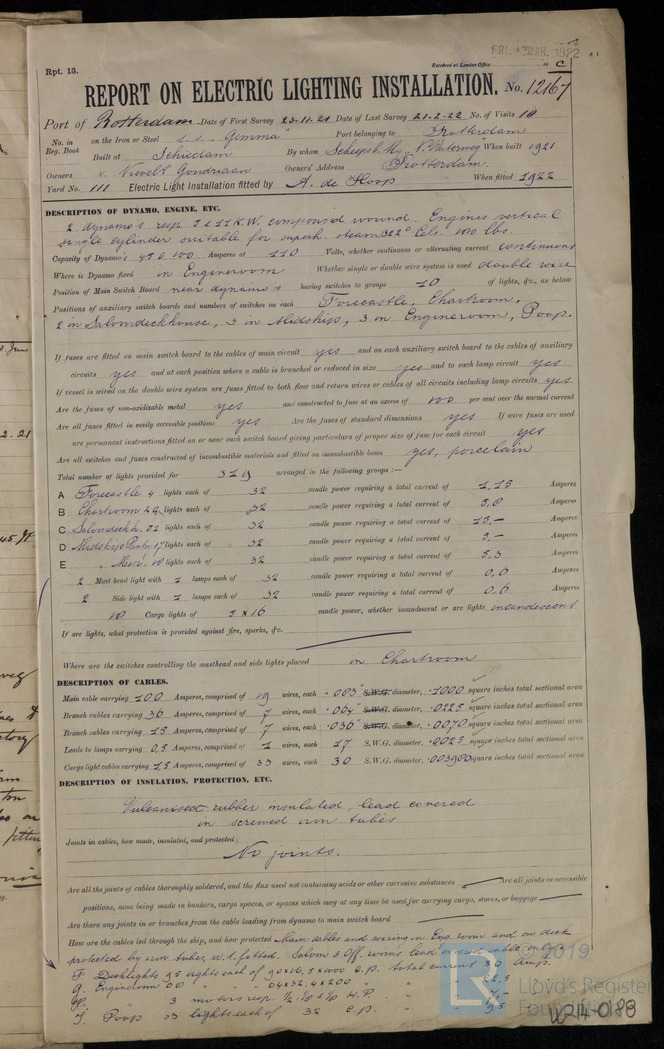 FRI. 3 MAR. 1922
Rpt. 13.
Received at London Office
C
REPORT ON ELECTRIC LIGHTING INSTALLATION. No. 12167
Port of Rotterdam Date of First Survey 23-11-21 Date of Last Survey 21-2-22 No. of Visits 10
No. in Reg. Book on the Iron or Steel s.s. "Gemma" Port belonging to Rotterdam
Built at Schiedam By whom Scheepsb. My. N. Waterweg When built 1921
Owners v. Nievelt Goudriaan Owners' Address Rotterdam
Yard No. 111 Electric Light Installation fitted by A. de Hoop When fitted 1922
DESCRIPTION OF DYNAMO, ENGINE, ETC.
2 dynamo's resp. 5 & 11 K.W. compound wound. Engines vertical
single cylinder suitable for superh. steam 322° Cels. lbs.
Capacity of Dynamo's 45 & 100 Amperes at 110 Volts, whether continuous or alternating current continuous
Where is Dynamo fixed in Engineroom Whether single or double wire system is used double wire
Position of Main Switch Board near dynamo's having switches to groups 10 of lights, &c., as below
Positions of auxiliary switch boards and numbers of switches on each Forecastle, Chartroom,
2 in Saloondeckhouse, 3 in Midship, 3 in Engineroom, Poop.
If fuses are fitted on main switch board to the cables of main circuit yes and on each auxiliary switch board to the cables of auxiliary
circuits yes and at each position where a cable is branched or reduced in size yes and to each lamp circuit yes
If vessel is wired on the double wire system are fuses fitted to both flow and return wires or cables of all circuits including lamp circuits yes
Are the fuses of non-oxidizable metal yes and constructed to fuse at an excess of 100 per cent over the normal current
Are all fuses fitted in easily accessible positions yes Are the fuses of standard dimensions yes If wire fuses are used
are permanent instructions fitted on or near each switch board giving particulars of proper size of fuse for each circuit yes
Are all switches and fuses constructed of incombustible materials and fitted on incombustible bases yes, porcelain
Total number of lights provided for arranged in the following groups :—
A Forecastle 4 lights each of 32 candle power requiring a total current of 1,15 Amperes
B Chartroom lights each of 32 candle power requiring a total current of 5,8 Amperes
C Saloondeckh. lights each of 32 candle power requiring a total current of 15,— Amperes
D Midship Party 17 lights each of 32 candle power requiring a total current of 5,— Amperes
E " Mess. 18 lights each of 32 candle power requiring a total current of 5,3 Amperes
2 Mast head light with 1 lamps each of 32 candle power requiring a total current of 0,6 Amperes
2 Side light with 1 lamps each of 32 candle power requiring a total current of 0,6 Amperes
10 Cargo lights of 5 x 16 candle power, whether incandescent or arc lights incandescent
If arc lights, what protection is provided against fire, sparks, &c.
Where are the switches controlling the masthead and side lights placed in Chartroom
DESCRIPTION OF CABLES.
Main cable carrying 100 Amperes, comprised of 19 wires, each .083" S.W.G. diameter, .1000 square inches total sectional area
Branch cables carrying 36 Amperes, comprised of 7 wires, each .064" S.W.G. diameter, .0225 square inches total sectional area
Branch cables carrying 15 Amperes, comprised of 7 wires, each .036" S.W.G. diameter, .0070 square inches total sectional area
Leads to lamps carrying 0,5 Amperes, comprised of 1 wires, each 17 S.W.G. diameter, .0025 square inches total sectional area
Cargo light cables carrying 1,5 Amperes, comprised of 33 wires, each 30 S.W.G. diameter, .003900 square inches total sectional area
DESCRIPTION OF INSULATION, PROTECTION, ETC.
Vulcanised rubber insulated, lead covered
in screwed iron tubes
Joints in cables, how made, insulated, and protected
No joints.
Are all the joints of cables thoroughly soldered, and the flux used not containing acids or other corrosive substances Are all joints in accessible
positions, none being made in bunkers, cargo spaces, or spaces which may at any time be used for carrying cargo, stores, or baggage
Are there any joints in or branches from the cable leading from dynamo to main switch board
How are the cables led through the ship, and how protected Main cables and wiring in Eng. room and on deck
protected by iron tubes, w.t. fitted. Saloon & Off. rooms lead covered cable only.
F Decklights 95 lights each of c.p. total current 30 Amp.
G. Engineroom
H. 3 motors resp. H.P.
J. Poop 33 lights each of 32 c.p.
© 2019
LR Lloyd's Register
Foundation
W214-0188